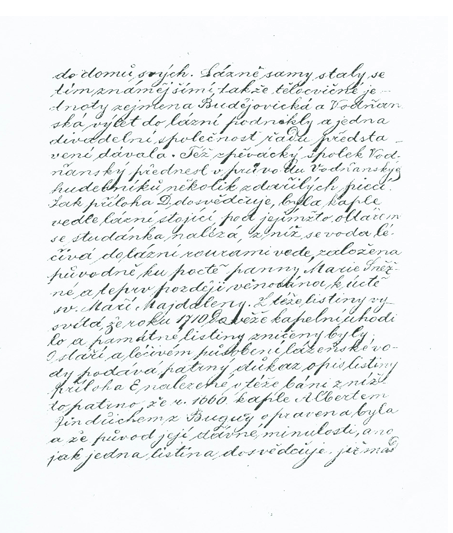 do domů svých. Lázně samy staly se
tím známějšími, takže tělocvičné je-
dnoty zejmena Budějovická a Vodňan-
ská výlet do lázní podnikly a jedna
divadelní společnost řadu předsta-
vení dávala. Též zpěvácký spolek Vod-
ňanský přednesl v průvodu Vodňanských
hudebníků několik zdařilých pieci.
Jak příloha D. dosvědčuje, byla kaple
vedle lázní stojící pod jejímžto oltářem
se studánka nalézá, z níž se voda lé-
čivá do lázní rourami vede, založena
původně ku poctě panny Marie Sněž-
né a teprv později věnována k úctě
sv. Maří Majdaleny. Z téže listiny vy-
svítá, že roku 1710 do věže kapelní uhodi-
lo a památné listiny zničeny byly.
O stáří a léčivém působení lázenské vo-
dy podává patrný důkaz opis listiny
příloha E, nalezené v téže báni z níž
to patrno, že r. 1660 kaple Albertem
Jindřichem z Buquoy opravena byla
a že původ její dávné minulosti, ano
jak jedna listina dosvědčuje, již má